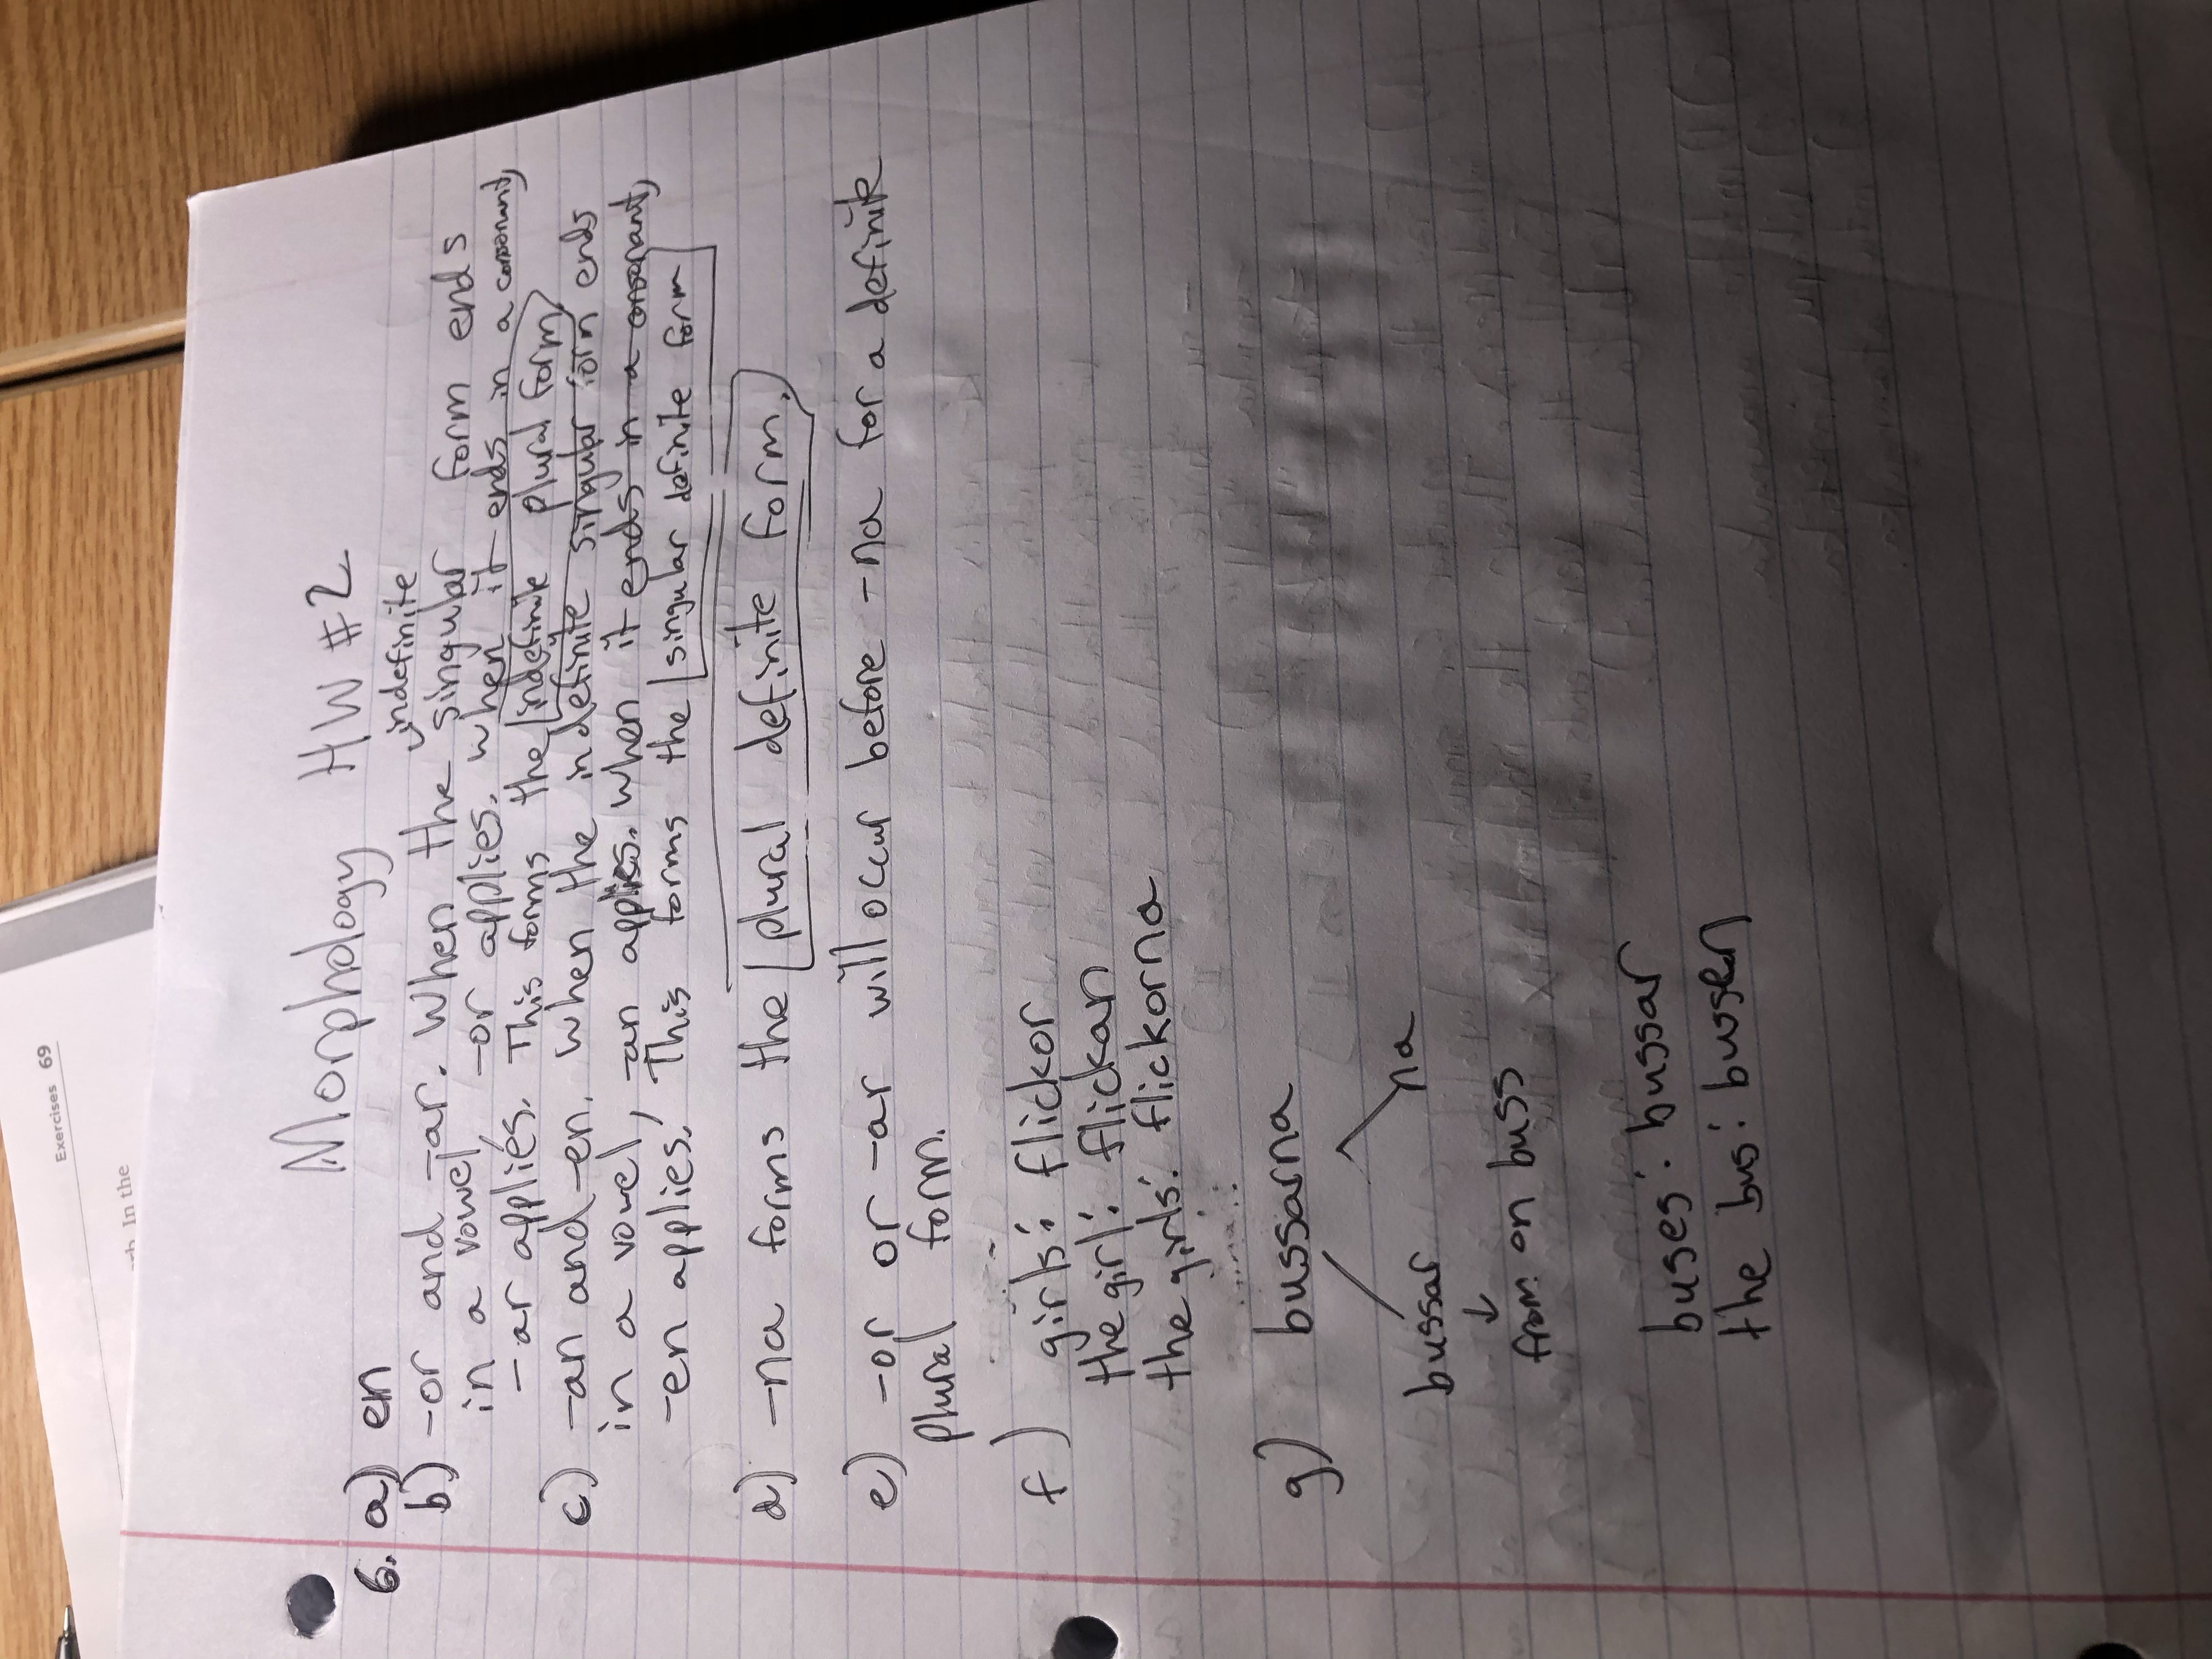 Exercises 69
In the
Morphology HW #2
6. a) en
indefinite
b) -or and -ar. When the singular form ends
in a vowel, -or applies. When it ends in a consonant,
-ar applies. This forms the indefinite plural form.
c) -an and -en. When the indefinite singular form ends
in a vowel, -an applies. When it ends in a consonant,
-en applies. This forms the singular definite form
d) -na forms the plural definite form.
e) -or or -ar will occur before -na for a definite
plural form.
f) girls: flickor
the girl: flickan
the girls: flickorna
g) bussarna
bussar na
from en buss
buses: bussar
the bus: bussen